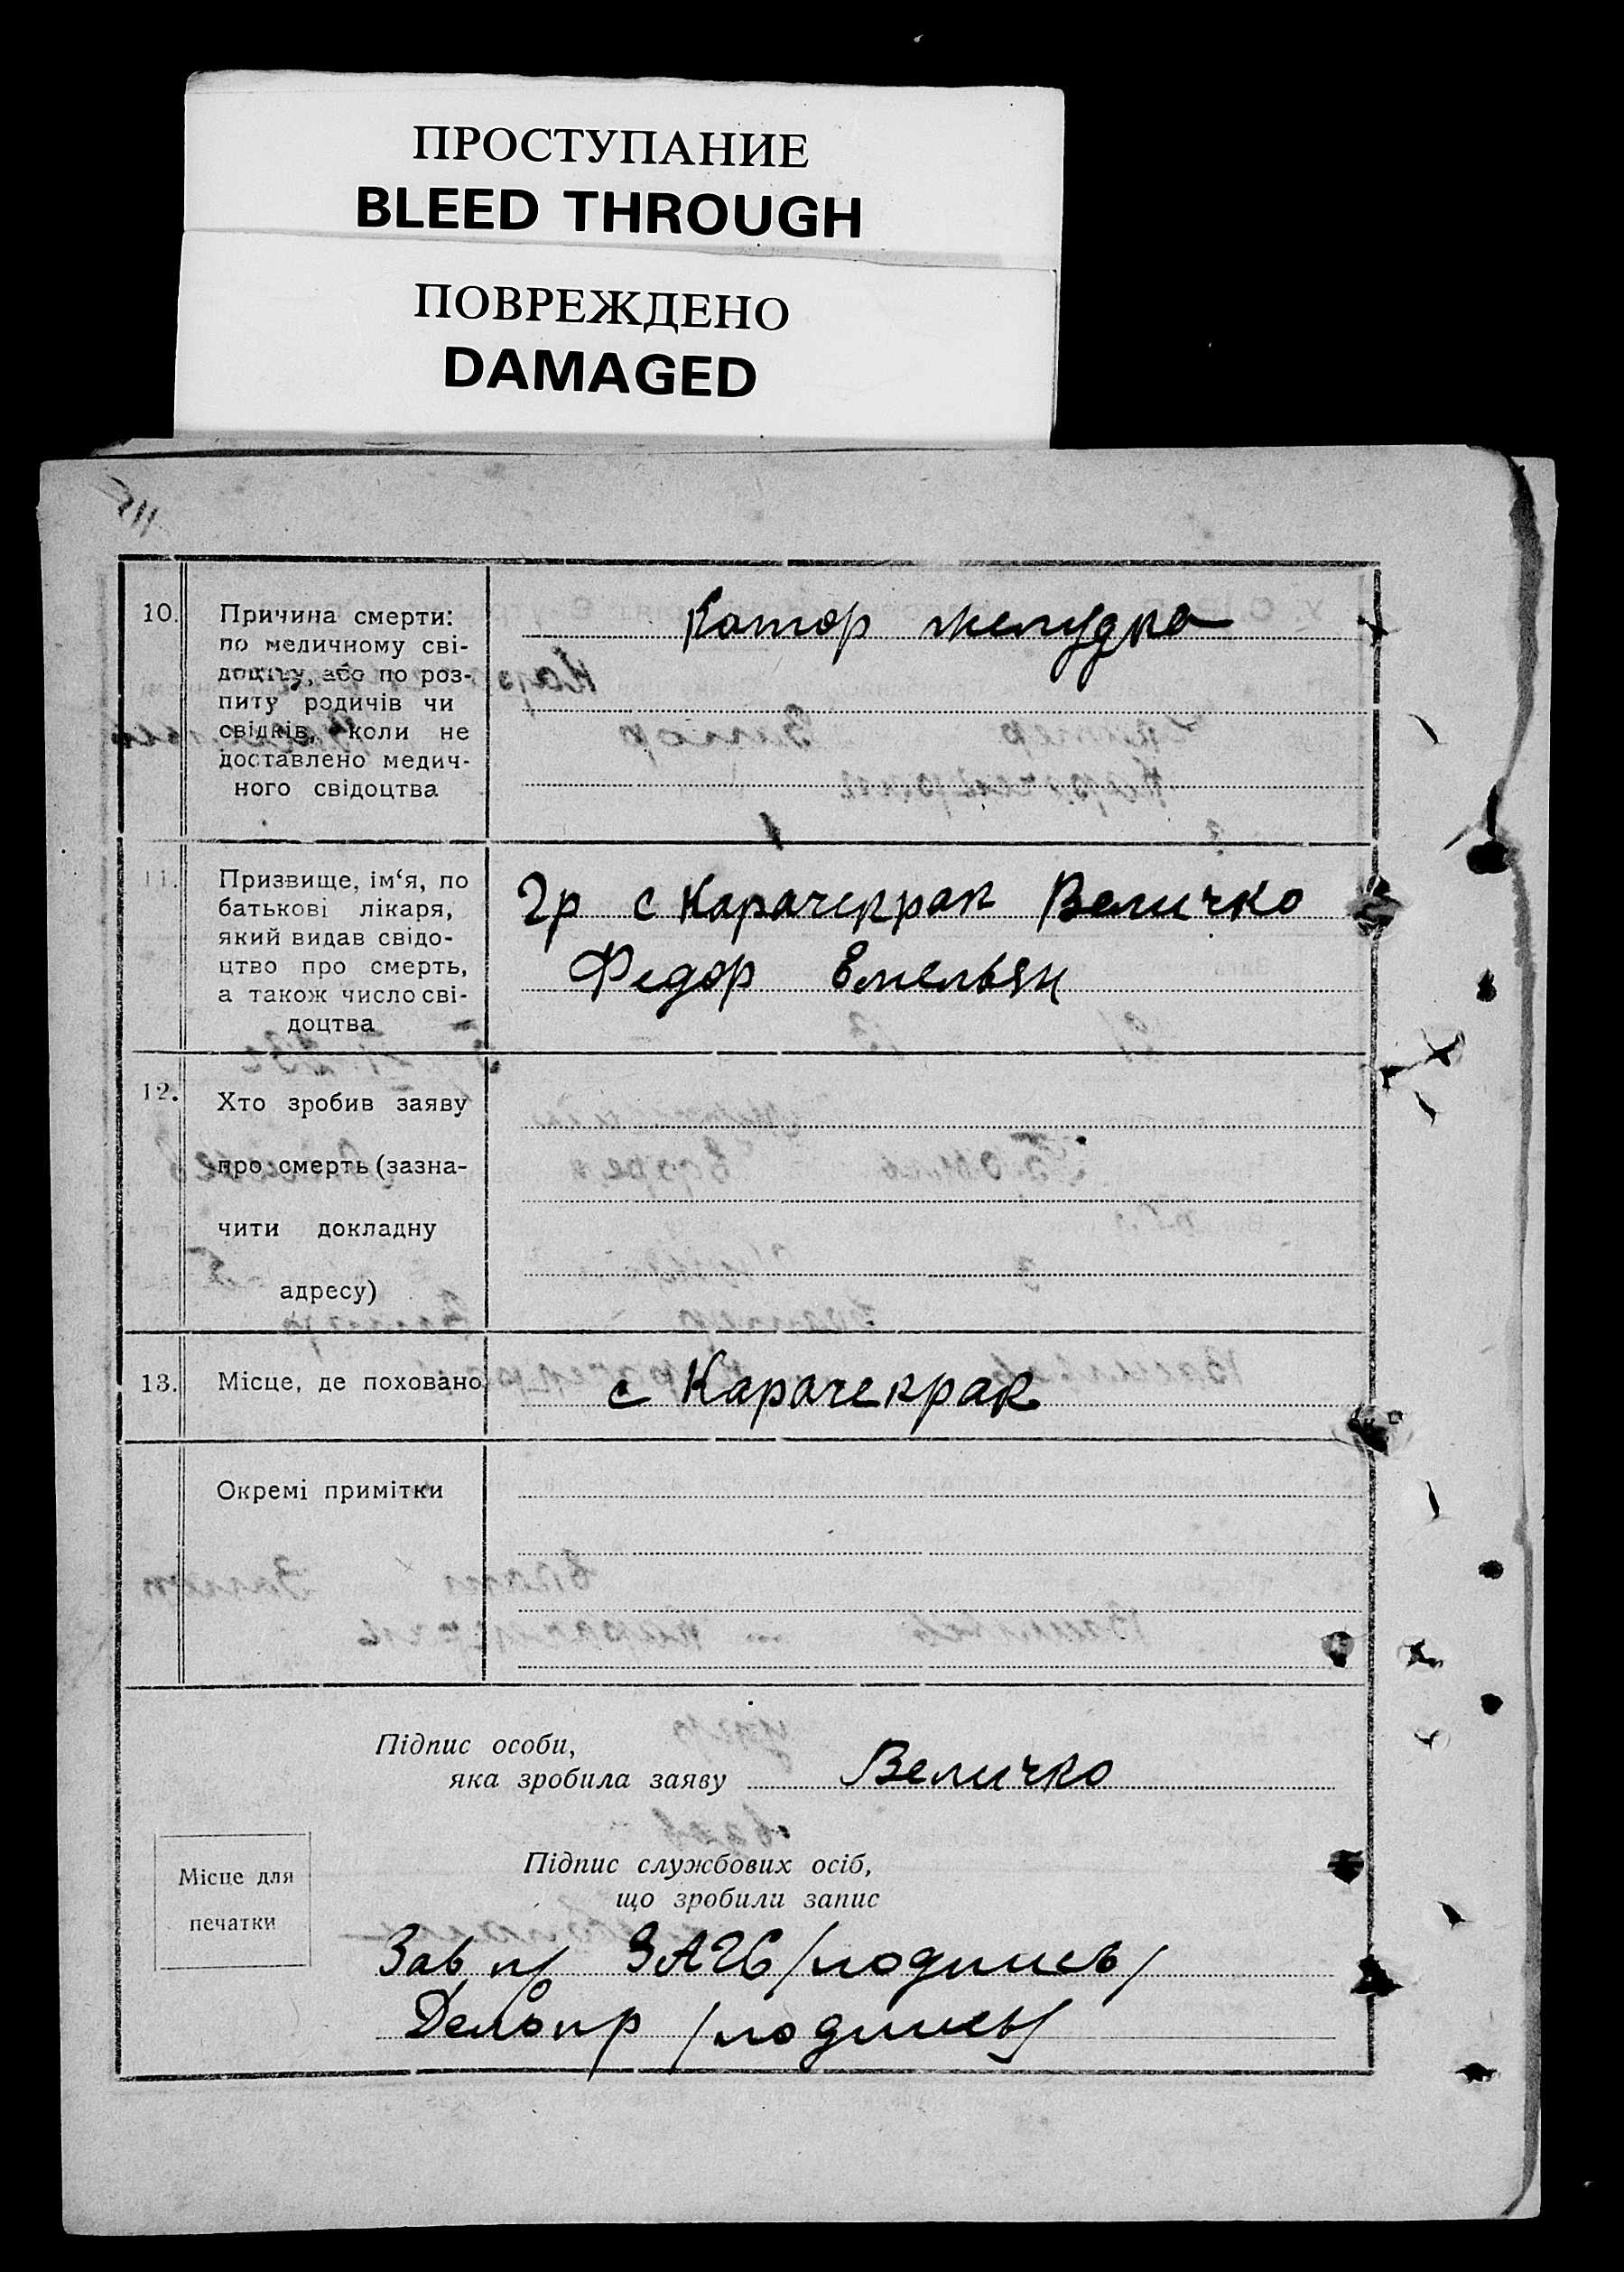 ПРОСТУПАНИЕ
BLEED THROUGH
ПОВРЕЖДЕНО
DAMAGED
10.
Причина смерти:
по медичному сві-
доцтву, або по роз-
питу родичів чи
свідків, коли не
доставлено медич-
ного свідоцтва
Катар желудка
11.
Призвище, ім‘я, по
батькові лікаря,
який видав свідо-
цтво про смерть,
а також число сві-
доцтва
Гр с Карачекрак Величко
Федор Емельян
12.
Хто зробив заяву
про смерть (зазна-
чити докладну
адресу)
13.
Місце, де поховано
с Карачекрак
Окремі примітки
Підпис особи,
яка зробила заяву Величко
Підпис службових осіб,
що зробили запис
Місце для
печатки
Зав п/ ЗАГС /подпись/
Делопр /подпись/